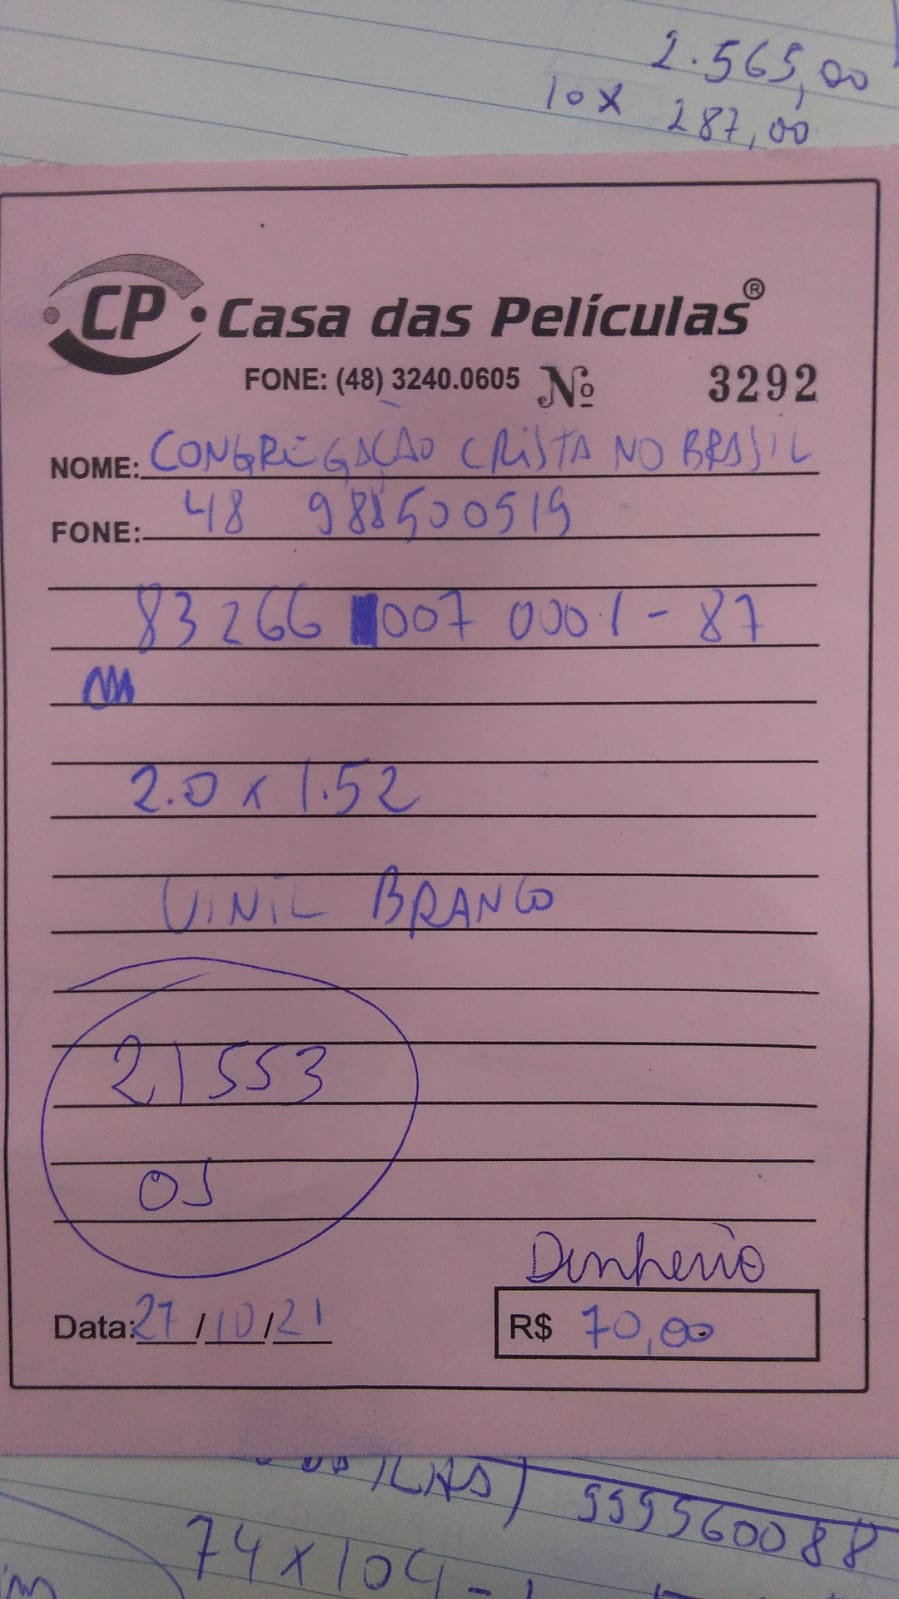 2.565,00
10 x 287,00
CP Casa das Películas®
FONE: (48) 3240.0605 Nº 3292
NOME: CONGREGAÇÃO CRISTA NO BRASIL
FONE: 48 988500519
83266 007 0001-87
2.0 x 1.52
VINIL BRANCO
21553
OS
Dinheiro
Data: 27/10/21 R$ 70,00
ILHAS) 999560088
74 x 104